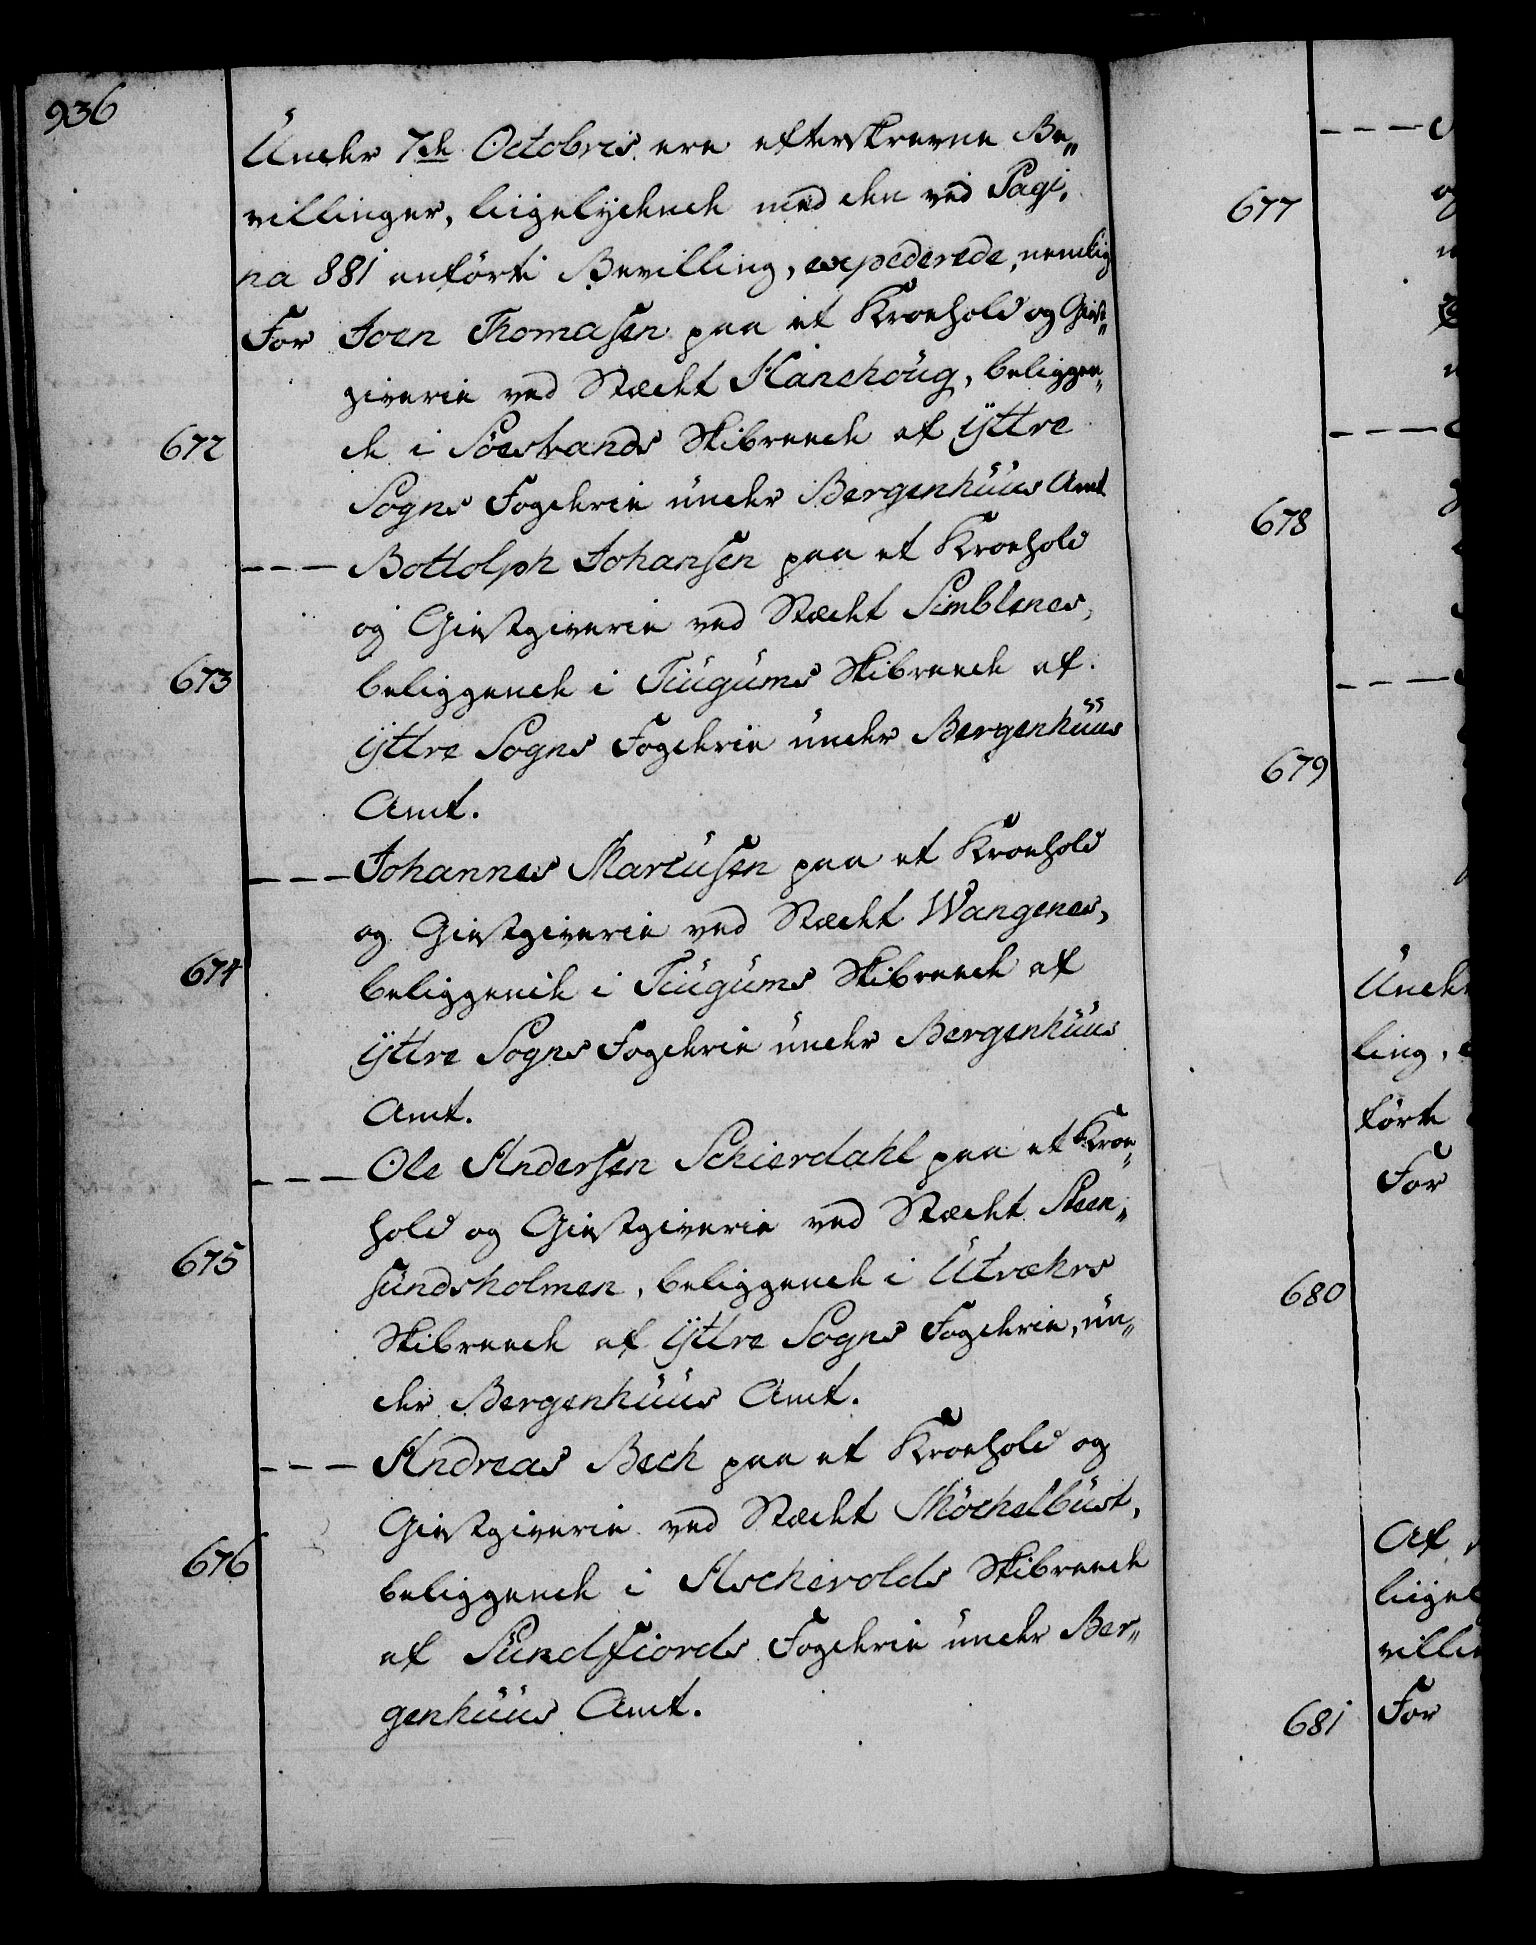 936
Under 7de Octobris ere efterskrevne Be„
villinger, liigelydende med den ved Pagi„
na 881 anførte Bevilling, expederede, nemlig
For Joen Thomasen paa et Kroehold og Giest„
giverie ved Stædet Hanehoug, beliggen„
672
de i Söestrands Skibrede af ÿttre
Sogns Fogderie under Bergenhuus Amt
--- Bottolph Johansen paa et Kroehold
og Giestgiverie ved Stædet Simblenes,
673
beliggende i Tiugums Skibrede af
ÿttre Sogns Fogderie under Bergenhuus
Amt.
--- Johannes Marcusen paa et Kroehold
og Giestgiverie ved Stædet Wangenes,
674
beliggende i Tiugums Skibrede af
ÿttre Sogns Fogderie under Bergenhuus
Amt.
--- Ole Andersen Schierdahl paa et Kroe„
hold og Giestgiverie ved Stædet Steen„
675
sundsholmen, beliggende i Utvæhrs
Skibrede af ÿttre Sogns Fogderie, un„
der Bergenhuus Amt.
--- Andreas Bech paa et Kroehold og
Giestgiverie ved Stædet Möchelbust,
676
beliggende i Aschevolds Skibrede
af Sundfiords Fogderie under Ber„
genhuus Amt.
677
678
679
Unde
ling,
førte
For
680
Af
liigel
ville
681
For